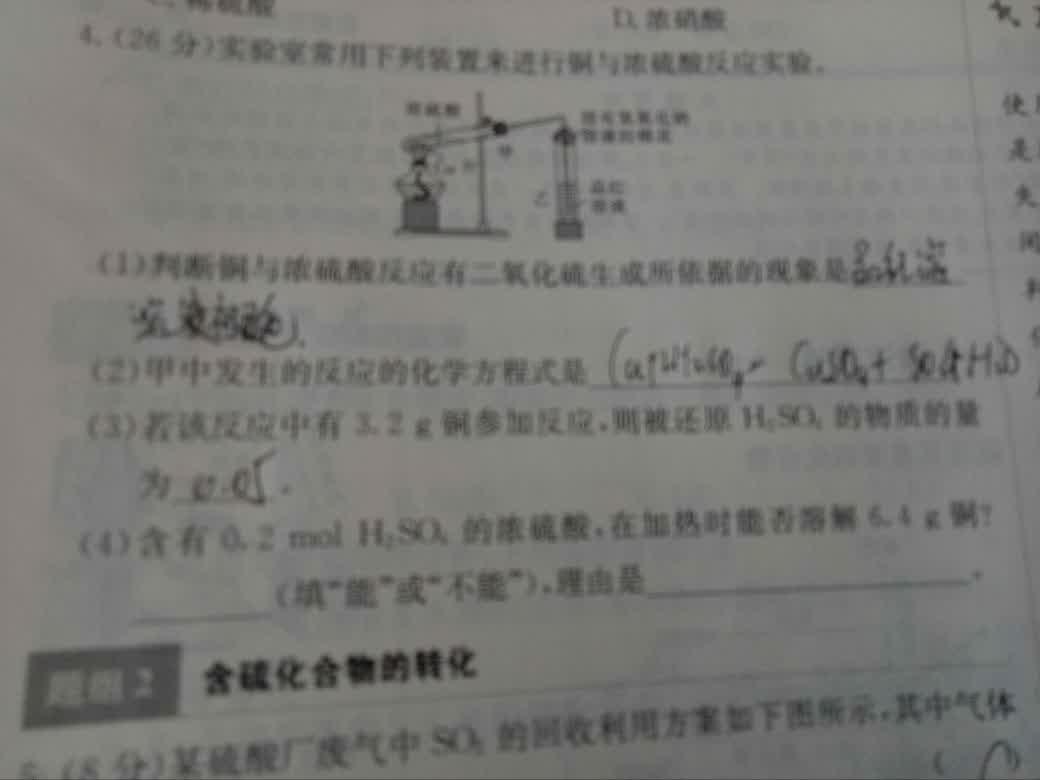 稀硫酸 D. 浓硝酸
4. (26 分)实验室常用下列装置来进行铜与浓硫酸反应实验。
浓硫酸
甲
乙
品红
溶液
(1)判断铜与浓硫酸反应有二氧化硫生成所依据的现象是品红溶
液变褪色.
(2)甲中发生的反应的化学方程式是
(3)若该反应中有 3.2 g 铜参加反应,则被还原 H₂SO₄ 的物质的量
为 0.05.
(4)含有 0.2 mol H₂SO₄ 的浓硫酸,在加热时能否溶解 6.4 g 铜?
(填“能”或“不能”),理由是 。
题组 2 含硫化合物的转化
5. (8 分)某硫酸厂废气中 SO₂ 的回收利用方案如下图所示,其中气体